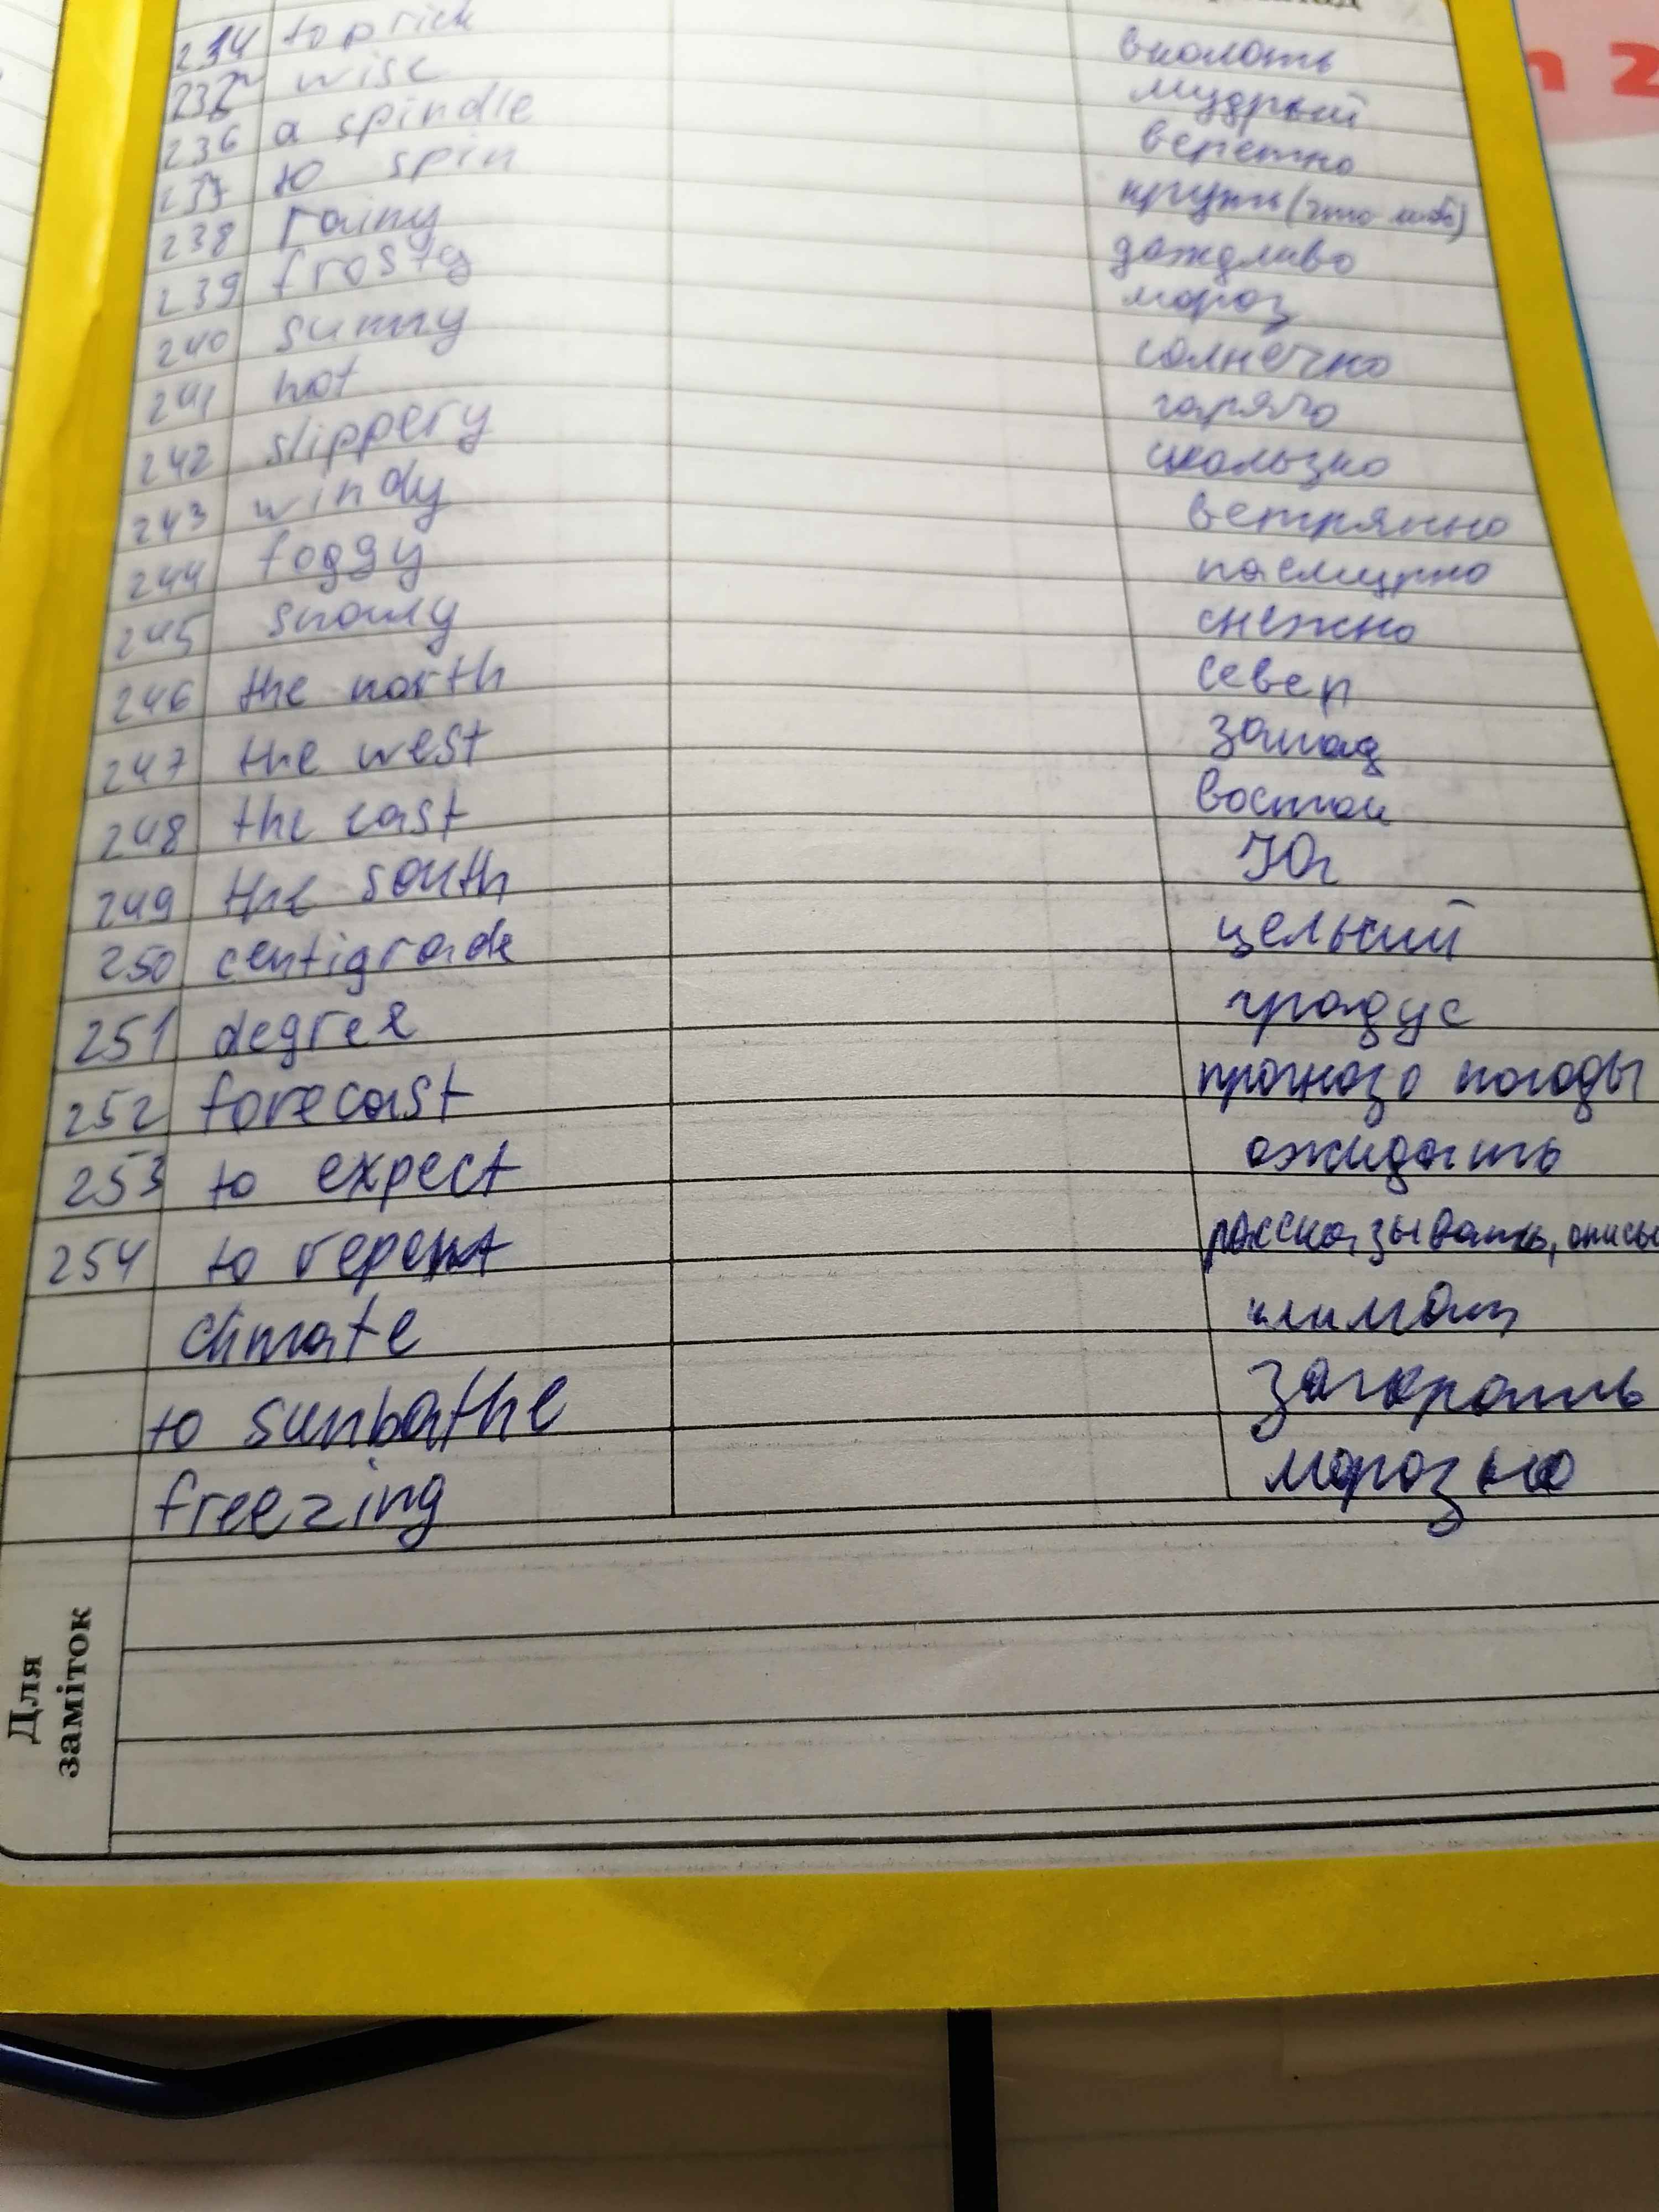 234 to prick вколоть
235 wise мудрый
236 a spindle веретно
237 to spin (что-либо)
238 rainy дождливо
239 frosty мороз
240 sunny солнечно
241 hot горячо
242 slippery скользко
243 windy ветрянно
244 foggy пасмурно
245 snowy снежно
246 the north север
247 the west запад
248 the east восток
249 the south Юг
250 centigrade цельсий
251 degree градус
252 forecast прогноз о погоды
253 to expect ожидать
254 to рассказывать, описы
climate климат
to sunbathe загорать
freezing морозно
Для
заміток